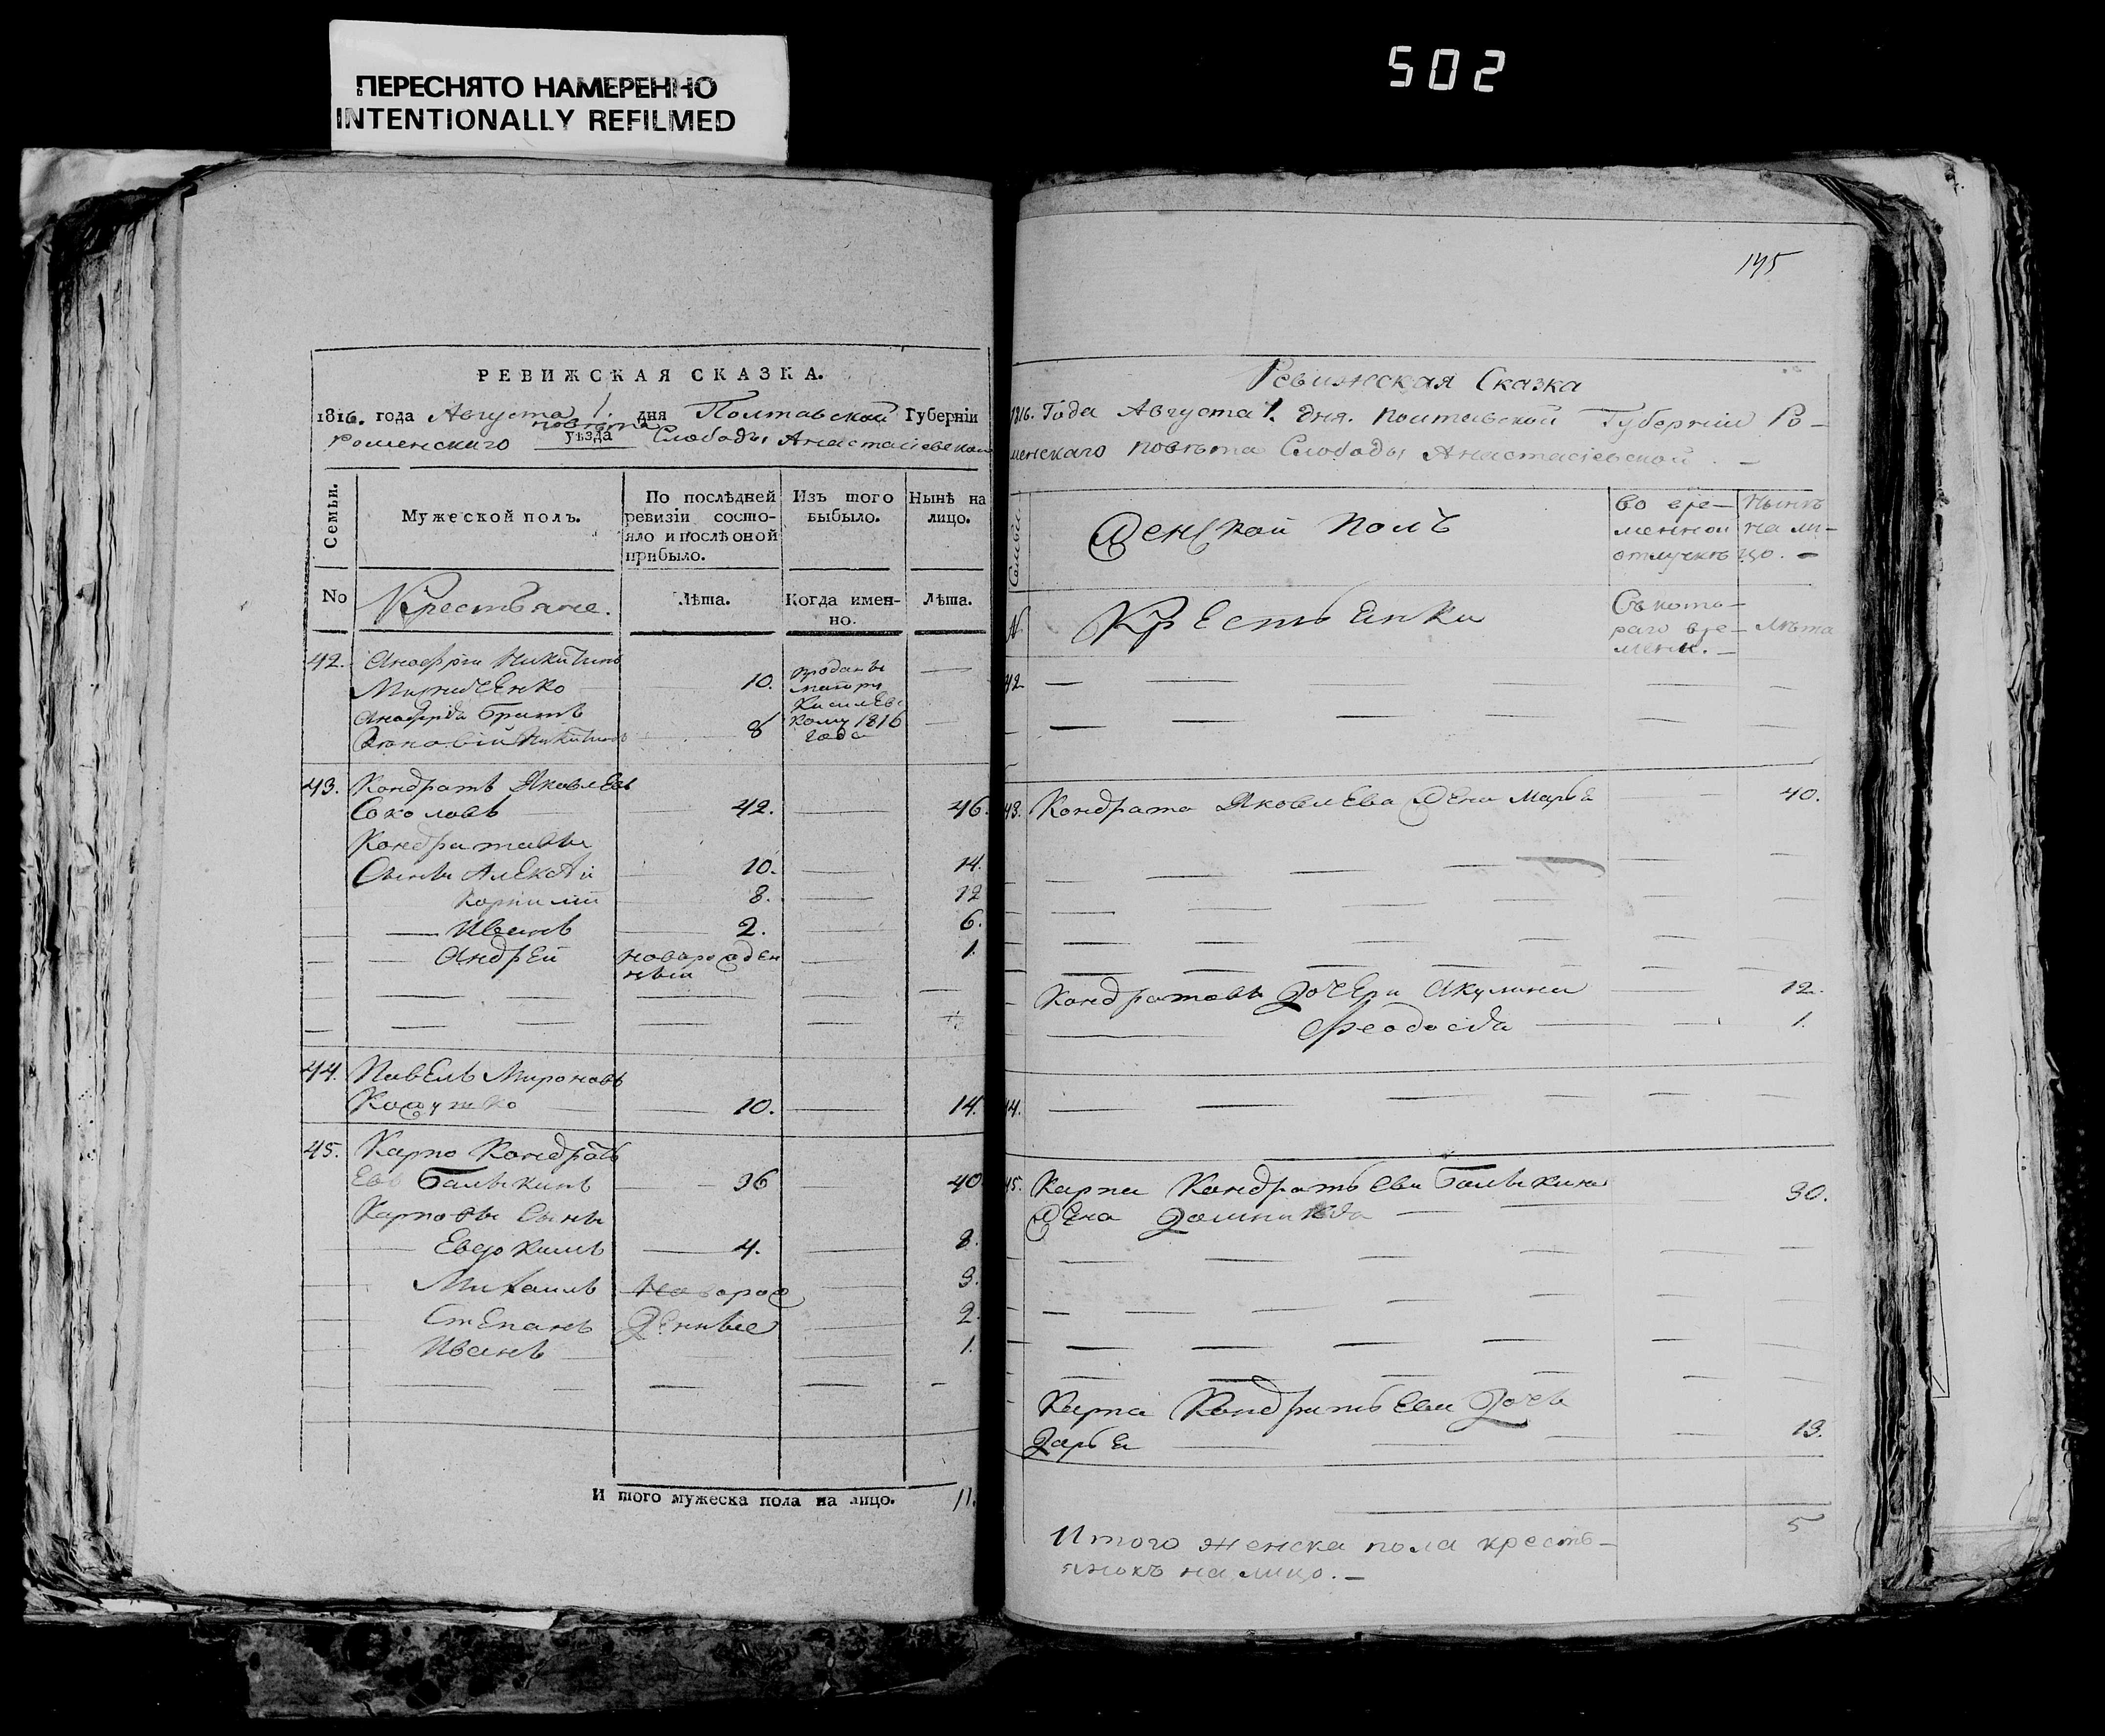 ПЕРЕСНЯТО НАМЕРЕННО
INTENTIONALLY REFILMED
502
РЕВИЖСКАЯ СКАЗКА.
1816. года Августа 1. дня Полтавской Губерніи
повѣта
Роменскаго уѣзда Слободы Анастасіевской
Семьи.
Мужеской полъ.
По послѣдней
ревизіи состо-
яло и послѣ оной
прибыло.
Изъ того
выбыло.
Нынѣ на
лицо.
No
Крестьяне.
Лѣта.
Когда имен-
но.
Лѣта.
42. Анофрій Никитинъ
10.
проданы
маіору
8
кому 1816
года
братъ
Никитинъ
43. Кондратъ Яковлевъ
Соколовъ 42. 46.
Кондратовы
Сыны Алексѣй 10. 14.
Корнилій 8. 12
Иванъ 2. 6.
Андрей новорожден 1.
ный
44. Павелъ Мироновъ
10. 14.
45. Карпо Кондрать
евъ Балыкинъ 36 40
Карповы Сыны
Евдокимъ 4. 8.
Михаилъ новорож 3.
Степанъ денные 2.
Иванъ 1.
И того мужеска пола на лицо. 11.
145
Ревижская Сказка
1816. Года Августа 1. дня. Полтавской Губерніи Ро-
менскаго повѣта Слободы Анастасіевской
Семьи
Женской полъ
во вре-
менной
отлучкѣ
Нынѣ
на ли-
цо.
N
Крестьянки
Съ кото-
раго вре-
мени.
Лѣта
42
43. Кондрата Яковлева жена Марья 40.
Кондратовы дочери Акулина 12.
Феодосія 1.
44.
45. Карпа Кондратьева Балыкина 30.
жена
Карпа Кондратьева дочь
Дарья 13.
Итого женска пола кресть-
янокъ на лицо. 5